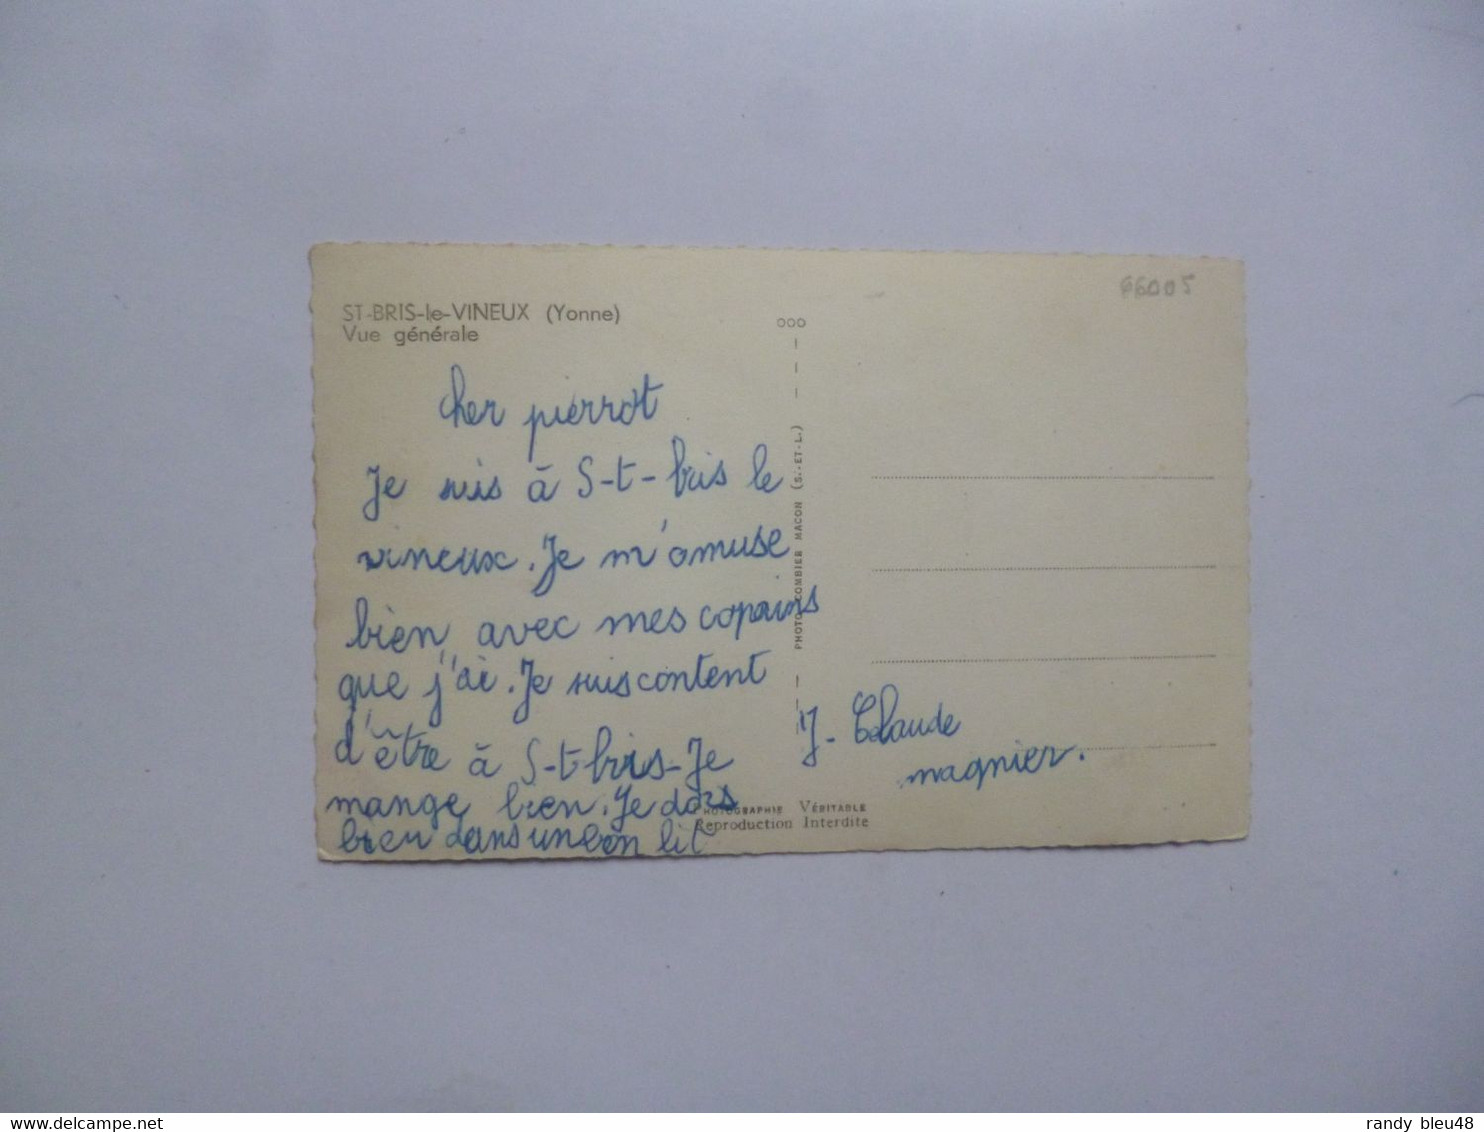 66005
ST-BRIS-le-VINEUX (Yonne)
Vue générale
cher pierrot
Je suis à S-t-bris le
vineux. Je m'amuse
bien avec mes copains
que j'ai. Je suis content
d'être à S-t-bris-Je
mange bien. Je dors
bien dans un bon lit
J. Claude
magnier.
PHOTO COMBIER MACON (S.-ET-L.)
PHOTOGRAPHIE VÉRITABLE
Reproduction Interdite
delcampe.net
randy bleu48